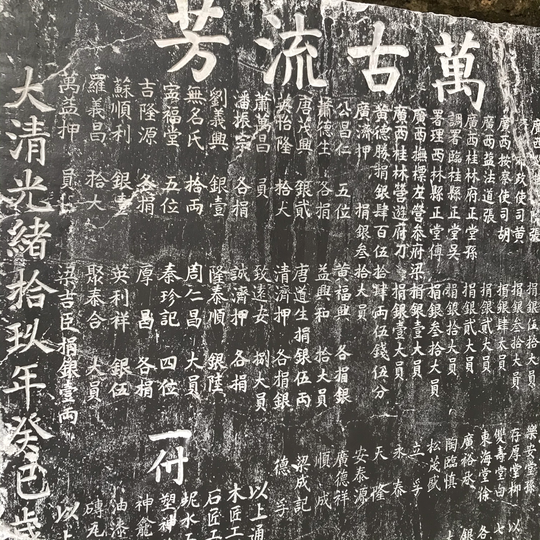 萬古流芳
廣西按察使司胡 捐銀叁拾大員
廣西鹽法道張 捐銀肆大員
廣西桂林府正堂孫 捐銀貳大員
調署臨桂縣正堂吳 捐銀貳大員
署理西林縣正堂傅 捐銀拾大員
廣西撫標左營參府梁 捐銀叁拾大員
廣西桂林營遊府刀 捐銀壹大員
黃德勝捐銀肆百伍拾肆両伍錢伍分
廣濟押 捐銀叁拾大員
公昌仁 五位 黃福興 各捐銀
蕭德生 各捐 益興和 拾大員
唐茂興 銀貳 唐道生捐銀伍両
英怡隆 拾大 清濟押 各捐銀
蕭萬昌 員 致遠安 捌大員
潘振宗 各捐 誠濟押 各捐
劉義興 銀壹 隆泰順 銀陸
無名氏 拾両 周仁昌 大員
宝福堂 五位 秦珍記 四位
吉隆源 各捐 厚昌 各捐
蘇順利 銀壹 英利祥 銀伍
羅義昌 拾大 聚泰合 大員
萬益押 員 梁吉臣捐銀壹両
樂安堂孫
存厚堂柳
雙壽堂白
東海堂徐
廣裕承
陶臨慎
松茂賦
立孚
永泰
天隆
安泰源
廣德祥
順成
梁成記
德孚
以上通
一付
木匠工
石匠工
坭水工
塑神
神龕
油漆
磚瓦
以上
大清光緒拾玖年癸巳歲